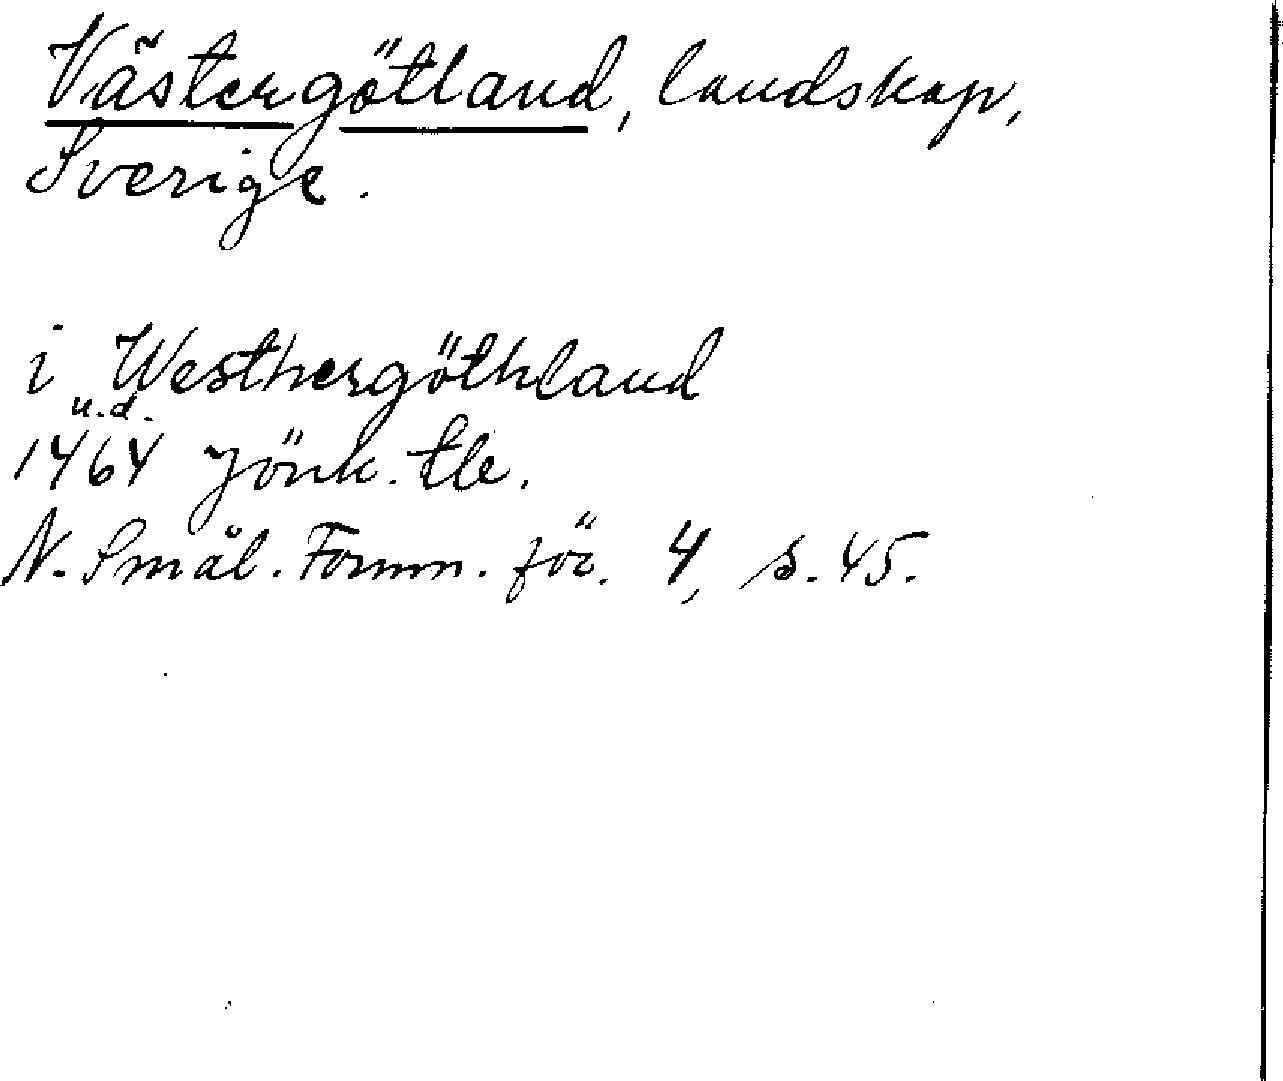 Västergötland, landskap,
Sverige.
i Westhergöthland
u.d.
1464 Jönk. tb.
N. Smål. Fornm. för. 4, s. 45.